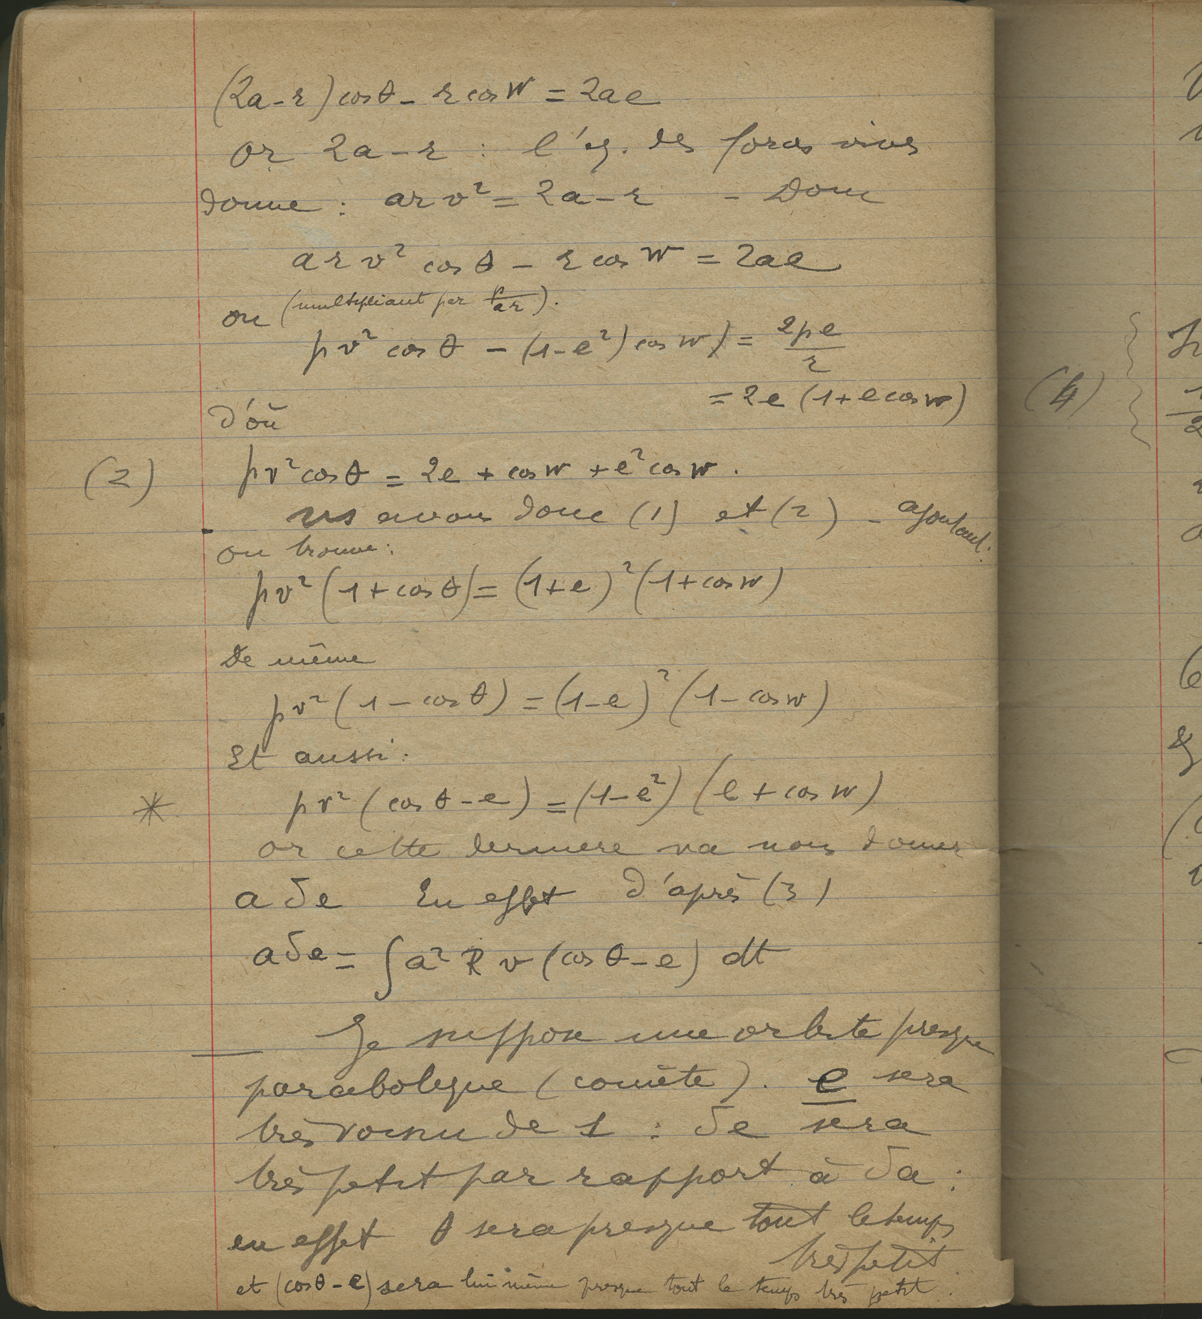 (2a-r) cosθ - r cos w = 2ae
or 2a-r : l'éq. des forces vives
donne : arv² = 2a-r - Donc
arv² cosθ - r cos w = 2ae
ou (multipliant par p/ar).
pv² cosθ - (1-e²) cos w) = 2pe/r
= 2e (1+e cos w)
(4)
d'où
(2) pv² cosθ = 2e + cos w + e² cos w.
ns avons donc (1) et (2) - ajoutant.
on trouve :
pv² (1+cosθ) = (1+e)² (1+cos w)
De même
pv² (1-cosθ) = (1-e)² (1-cos w)
Et aussi :
* pv² (cosθ-e) = (1-e²) (e+cos w)
or cette dernière va nous donner
a δe En effet d'après (3)
a δe = ∫a² R v (cosθ-e) dt
Je suppose une orbite presque
parabolique (comète). e sera
très voisin de 1 : δe sera
très petit par rapport à δa :
en effet θ sera presque tout le temps
très petit.
et (cosθ-e) sera lui même presque tout le temps très petit.